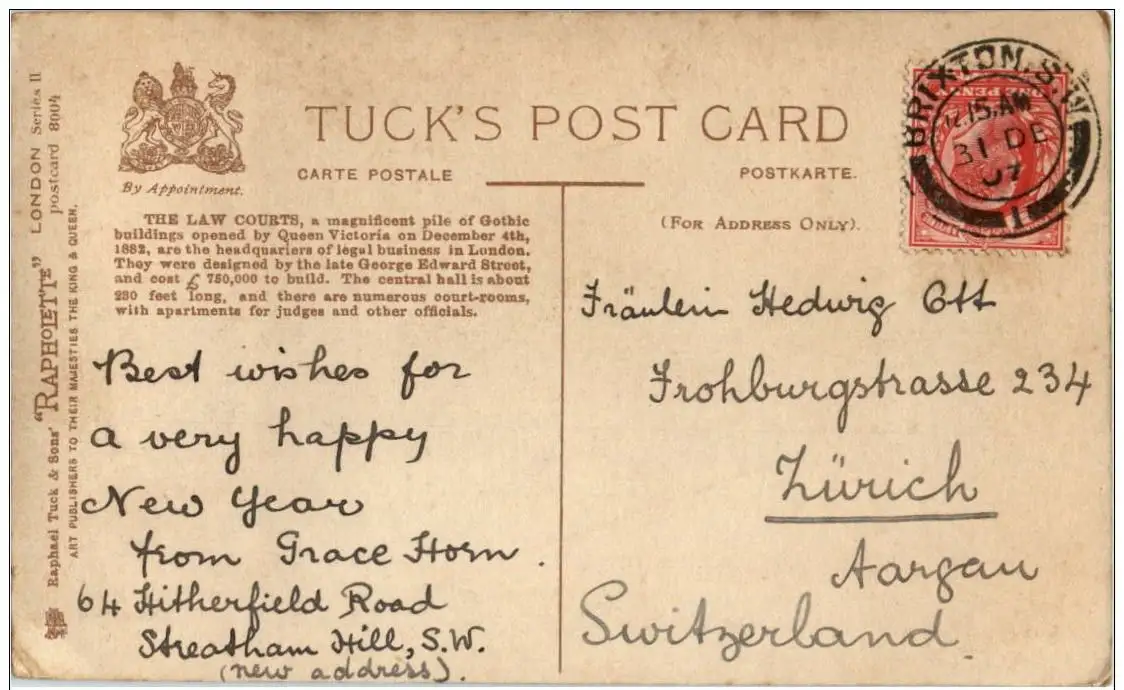 Raphael Tuck & Sons' "RAPHOLETTE" LONDON Series II
postcard 8004
ART PUBLISHERS TO THEIR MAJESTIES THE KING & QUEEN.
By Appointment.
TUCK'S POST CARD
CARTE POSTALE
POSTKARTE.
(FOR ADDRESS ONLY).
THE LAW COURTS, a magnificent pile of Gothic
buildings opened by Queen Victoria on December 4th,
1882, are the headquarters of legal business in London.
They were designed by the late George Edward Street,
and cost £ 750,000 to build. The central hall is about
230 feet long, and there are numerous court-rooms,
with apartments for judges and other officials.
Best wishes for
a very happy
New Year
from Grace Horn.
64 Hitherfield Road
Streatham Hill, S.W.
(new address).
BRIXTON. S.W.
12.15.AM
31 DE
07
1
ONE PENNY
Fräulein Hedwig Ott
Frohburgstrasse 234
Zürich
Aargau
Switzerland.